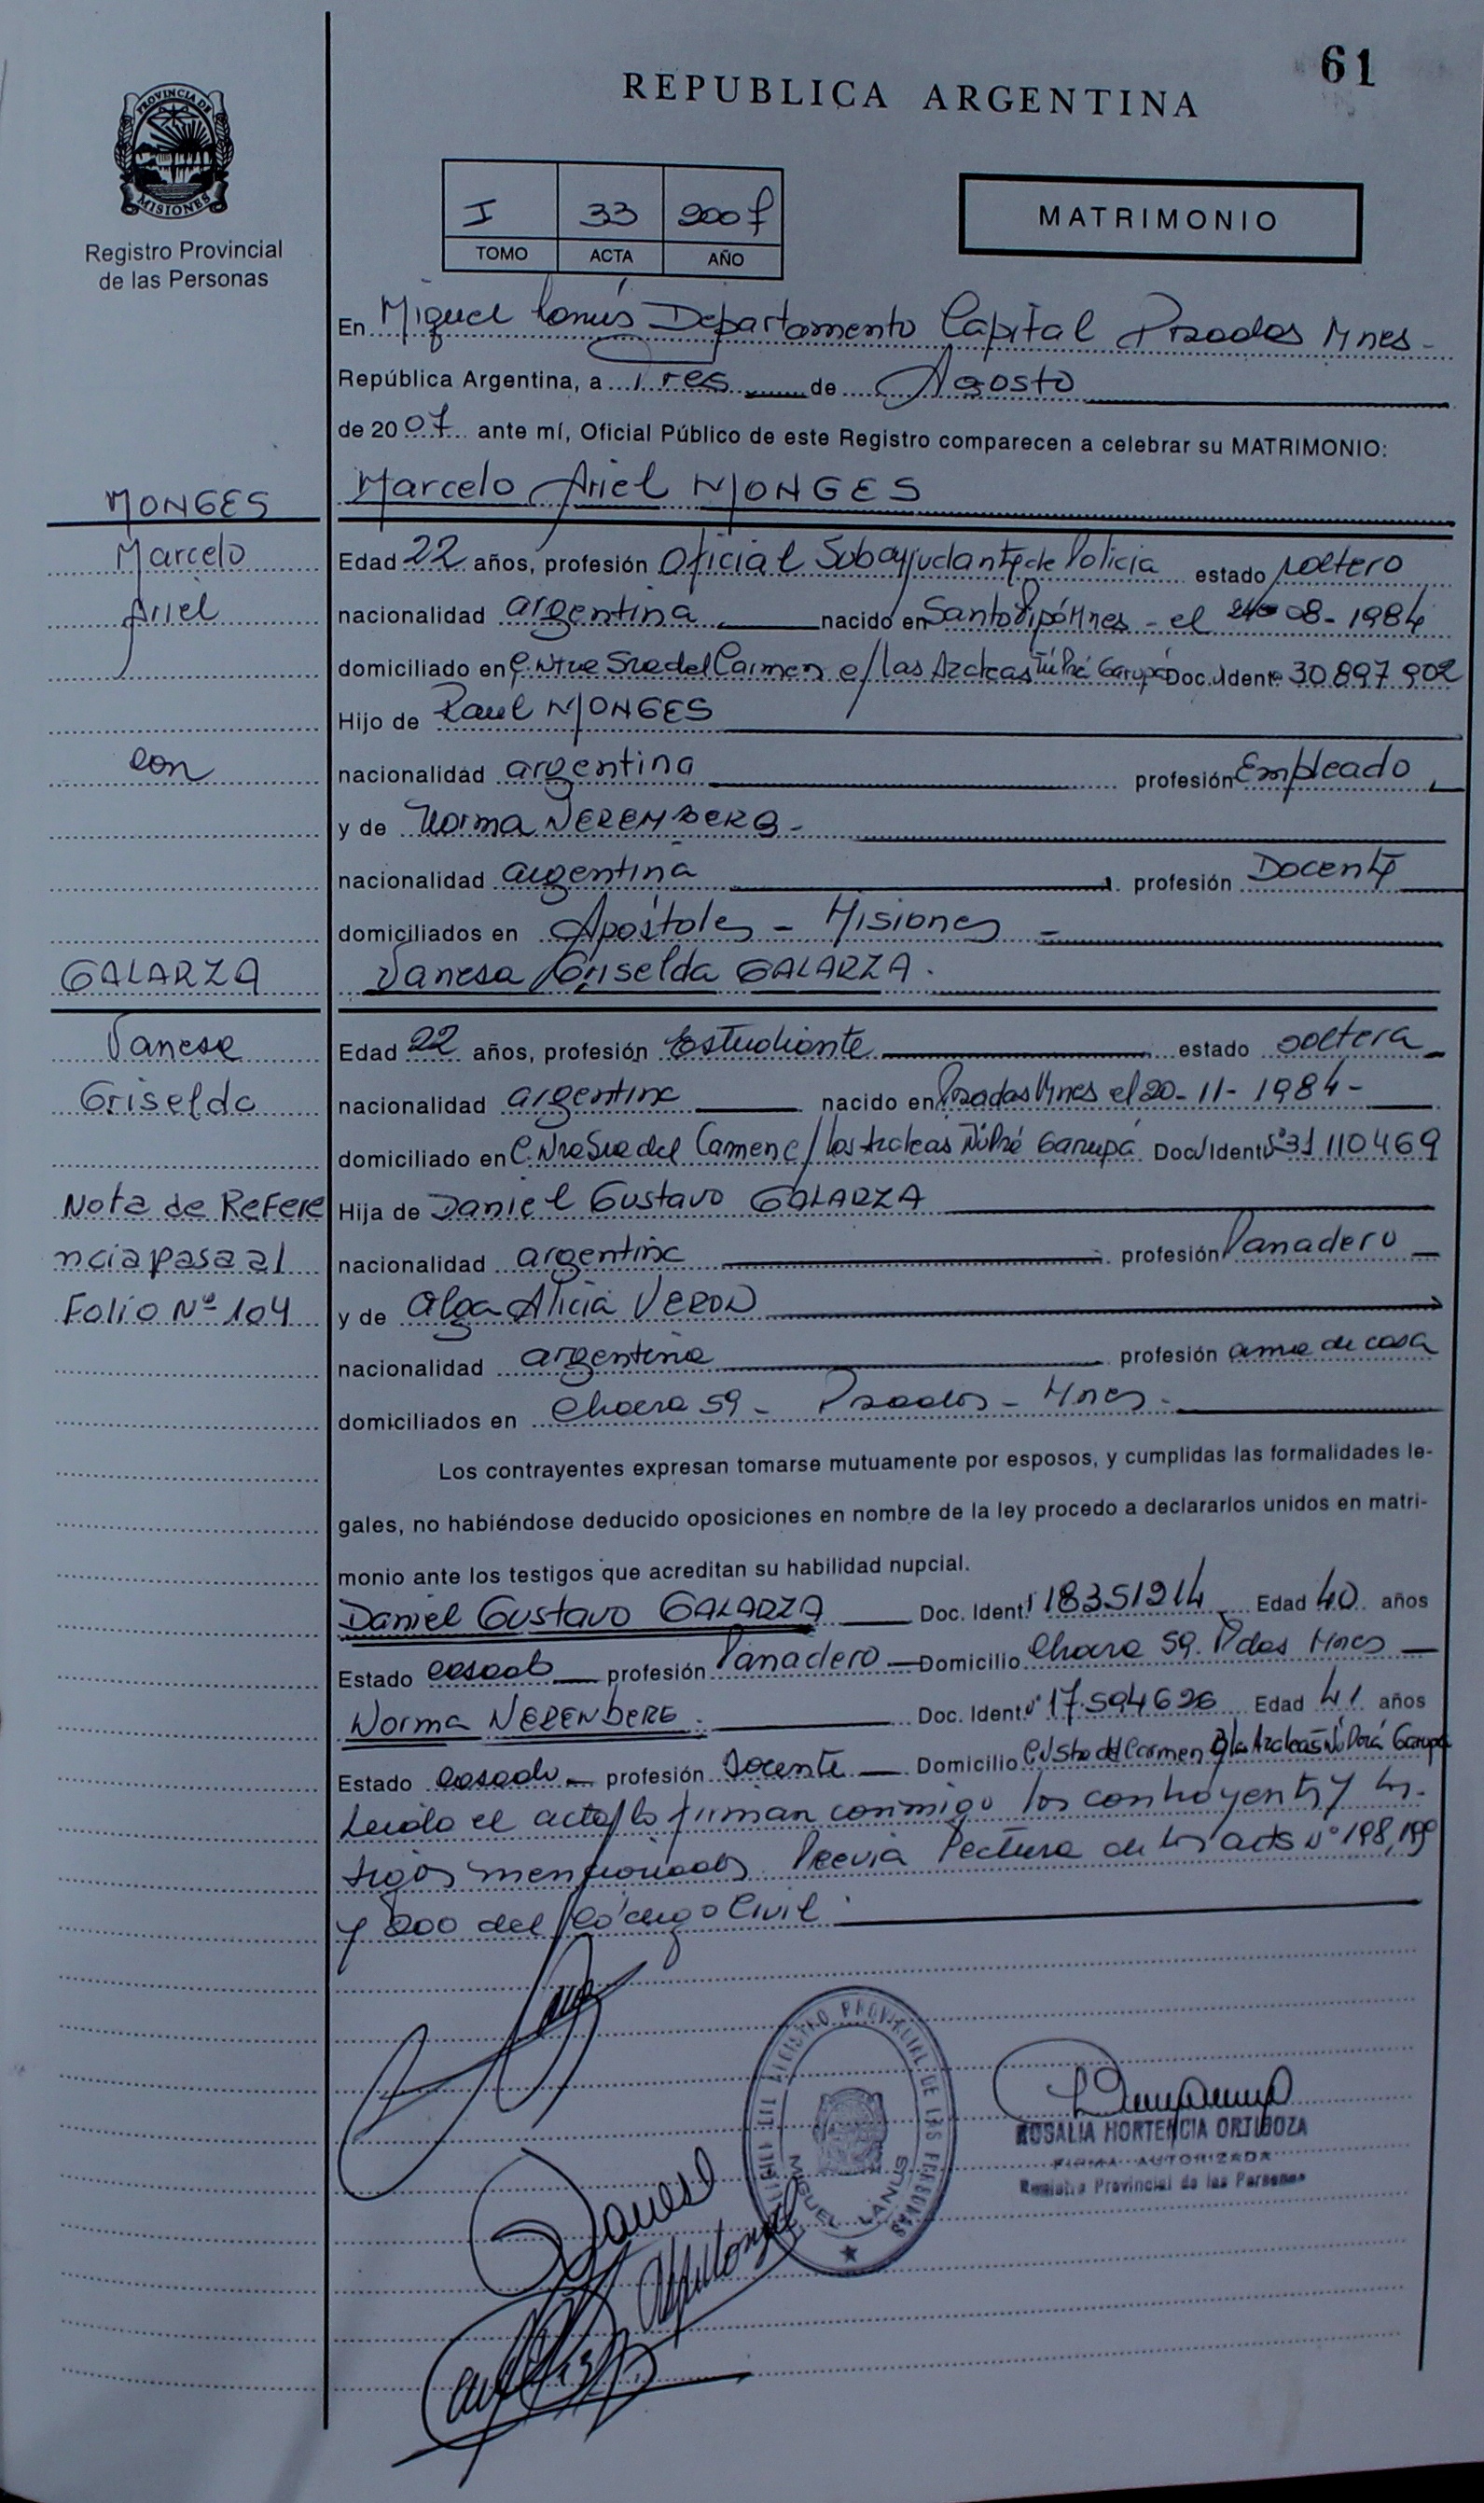 61
REPUBLICA ARGENTINA
PROVINCIA DE
MISIONES
Registro Provincial
de las Personas
I 33 2007
TOMO ACTA AÑO
MATRIMONIO
En Miguel Lanús Departamento Capital Posadas Mnes -
República Argentina, a Tres de Agosto
de 2007 ante mí, Oficial Público de este Registro comparecen a celebrar su MATRIMONIO:
MONGES
Marcelo Ariel MONGES
Marcelo
Edad 22 años, profesión Oficial Subayudante de Policia estado soltero
Ariel
nacionalidad argentina nacido en Santo Pipó Mnes - el 08-1984
domiciliado en C. Ntra Sra del Carmen e/ las Azaleas Ñu Porá Garupá Doc. Ident. 30897902
Hijo de Raul MONGES
con
nacionalidad argentina profesión Empleado
y de Norma NERENBERG -
nacionalidad argentina profesión Docente
domiciliados en Apóstoles - Misiones -
GALARZA
Vanesa Griselda GALARZA.
Vanesa
Edad 22 años, profesión Estudiante estado soltera
Griselda
nacionalidad argentina nacido en Posadas Mnes el 20-11-1984-
domiciliado en C. Ntra Sra del Carmen e/ las Azaleas Ñu Porá Garupá Doc. Ident. Nº 31110469
Nota de Refere
Hija de Daniel Gustavo GALARZA
ncia pasa al
nacionalidad argentina profesión Panadero
Folio Nº 104
y de Olga Alicia VERON
nacionalidad argentina profesión ama de casa
domiciliados en Chacra 59 - Posadas - Mnes -
Los contrayentes expresan tomarse mutuamente por esposos, y cumplidas las formalidades le-
gales, no habiéndose deducido oposiciones en nombre de la ley procedo a declararlos unidos en matri-
monio ante los testigos que acreditan su habilidad nupcial.
Daniel Gustavo GALARZA Doc. Ident. 18351214 Edad 40 años
Estado casado profesión Panadero Domicilio Chacra 59. Pdas Mnes
Norma NERENBERG. Doc. Ident. Nº 17.594626 Edad 41 años
Estado casado profesión Docente Domicilio C. N Sra del Carmen e/ las Azaleas Ñu Porá Garupá
Leida el acta, la firman conmigo los contrayentes y tes-
tigos mencionados. Previa lectura de los arts Nº 198, 199
y 200 del Código Civil.
REGISTRO PROVINCIAL DE LAS PERSONAS
MIGUEL LANUS
Vanesa
ROSALIA HORTENCIA ORTIGOZA
FIRMA AUTORIZADA
Registro Provincial de las Personas